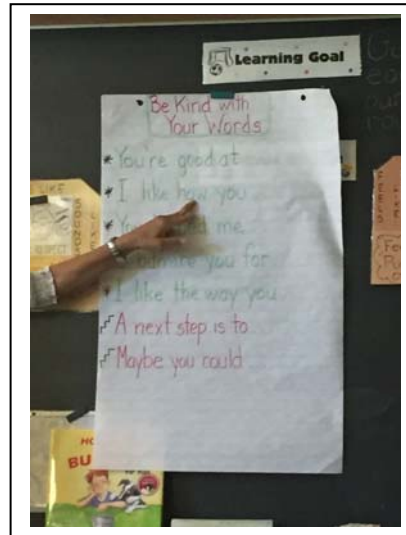 Learning Goal
Be Kind with
Your Words
* You're good at
* I like how you
* me
admire you for
* I like the way you
A next step is to
Maybe you could
HO
BU
LIKE
FEELS
LIKE